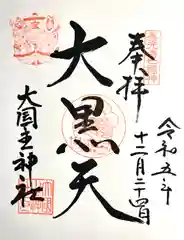 奉拝
大黒天
令和五年
十二月二十四日
大国主神社